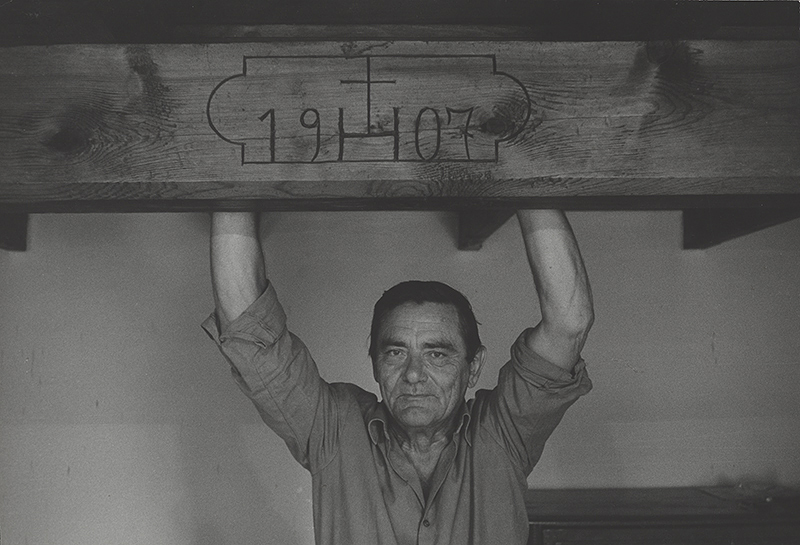 19 H 07